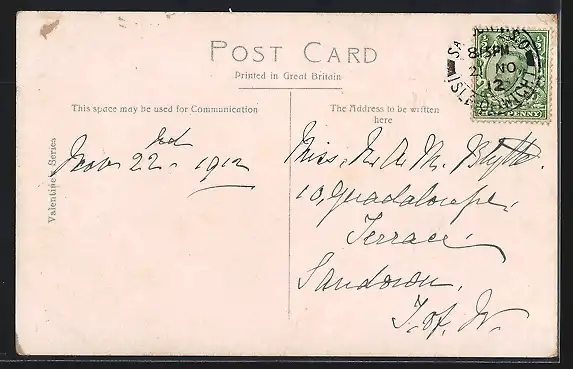 POST CARD
Printed in Great Britain
This space may be used for Communication
The Address to be written
here
Valentine's Series
Nov 22nd. 1912
Miss. N. A. M. Blyth.
10, Guadaloupe.
Terrace.
Sandown.
I. of. W.
8.15PM
NO
12
PENNY